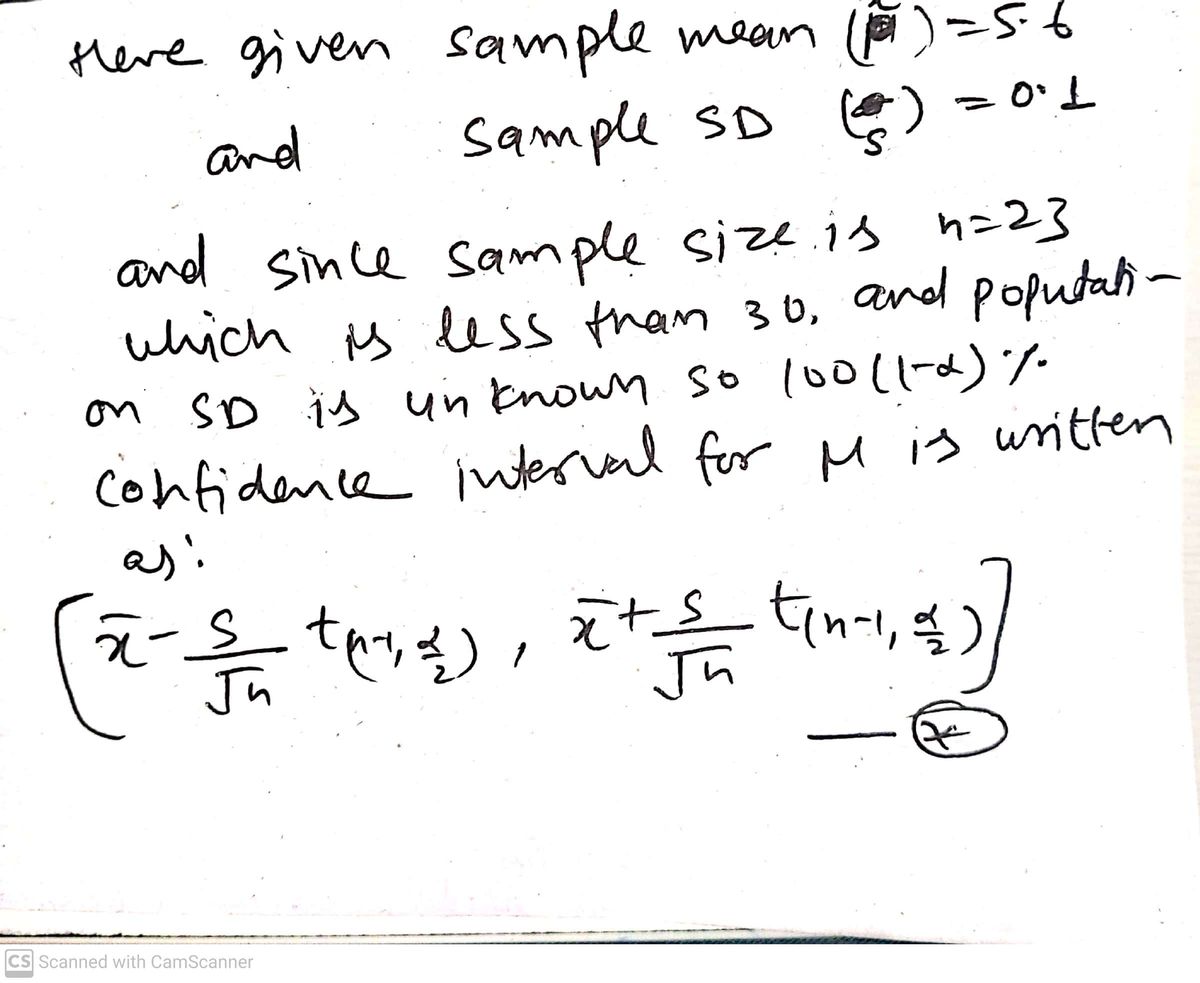 Here given sample mean (x̄) = 5.6
and sample SD (s) = 0.1
and since sample size is n=23
which is less than 30, and populati-
on SD is unknown so 100(1-α)%
confidence interval for μ is written
as:
[x̄ - s/√n t(n-1, α/2), x̄ + s/√n t(n-1, α/2)]
— *
CS Scanned with CamScanner